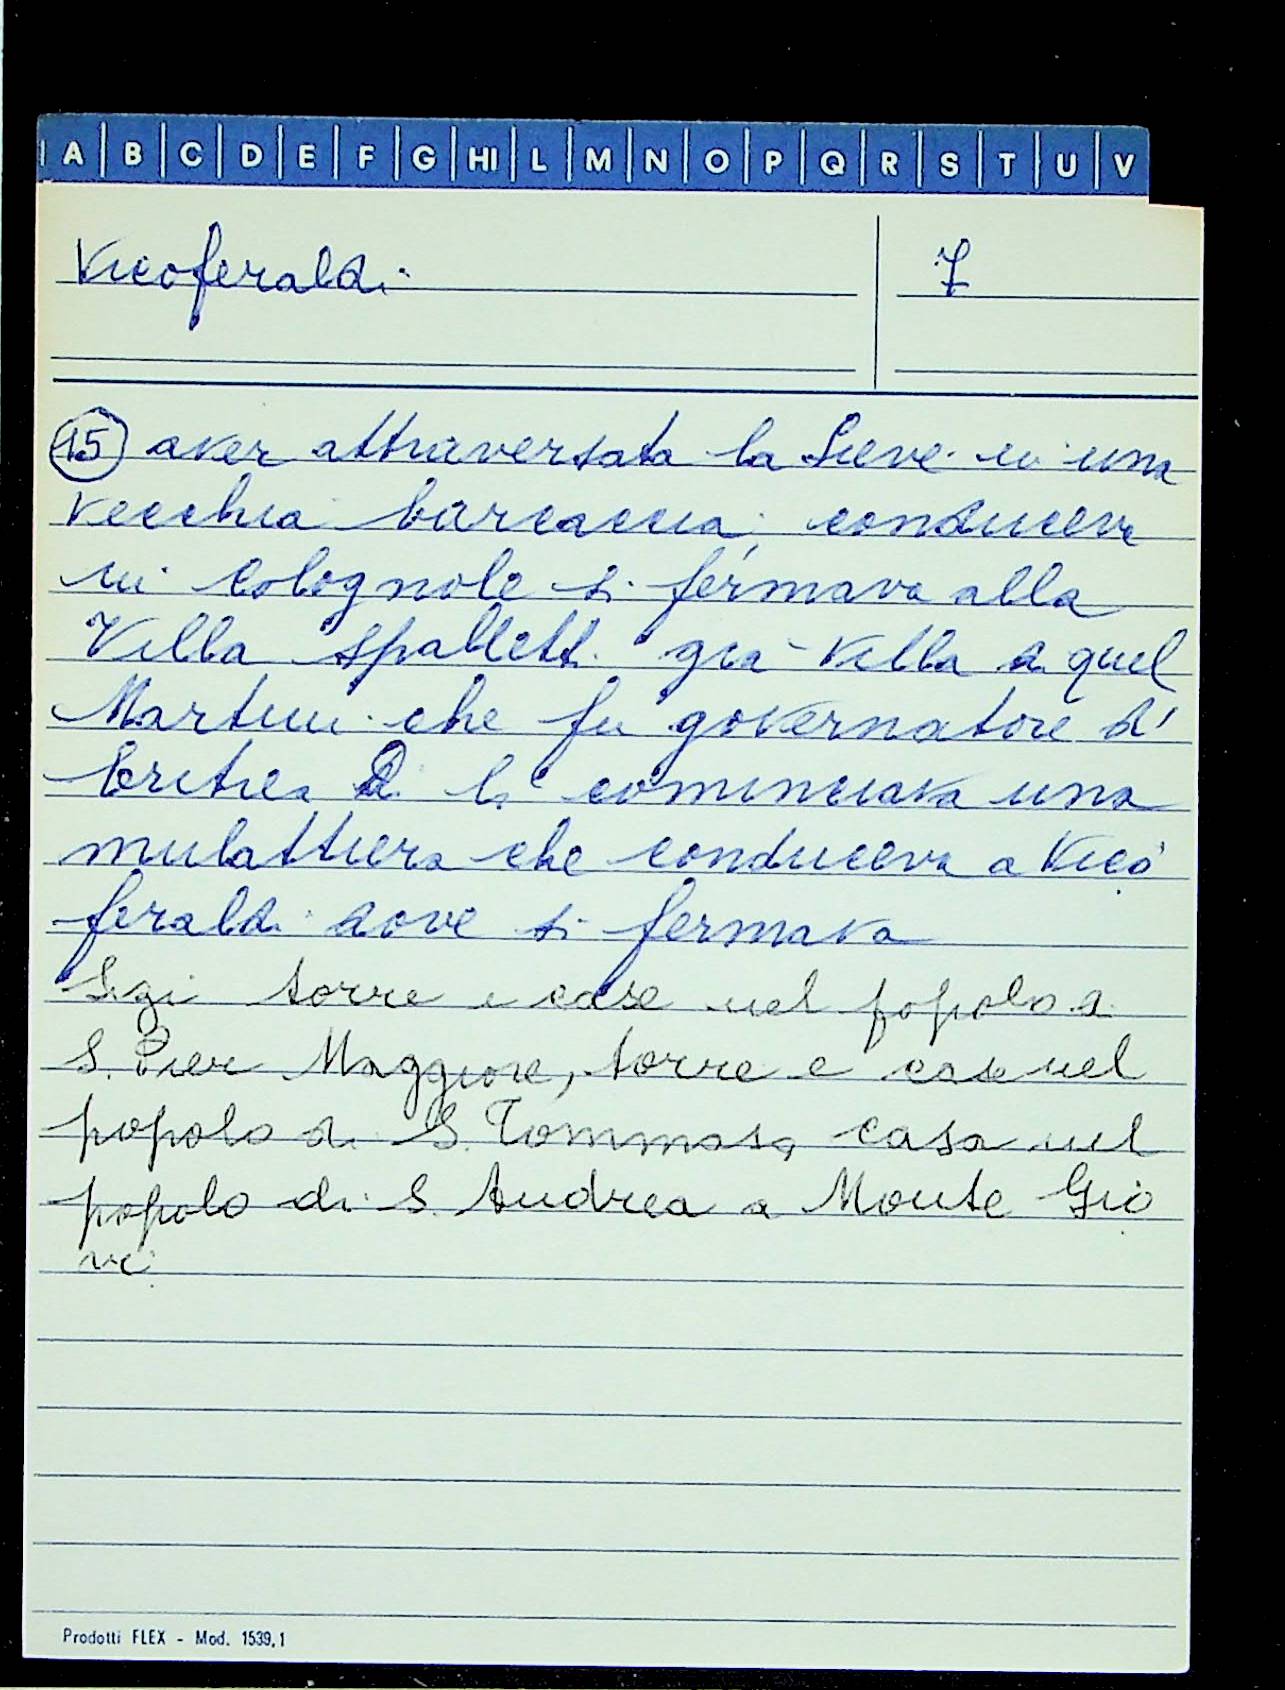 A B C D E F G HI L M N O P Q R S T U V
Vicoferaldi 7
15 aver attraversata la Sieve in una
vecchia barcaccia, conduceva
in Colognole si fermava alla
Villa Spalletti già Villa di quel
Martini che fu governatore d'
Eritrea Di lì cominciava una
mulattiera che conduceva a Vico
feraldi dove si fermava
torre e case nel popolo di
S. Pier Maggiore, torre e case nel
popolo di S. Tommaso, casa nel
popolo di S. Andrea a Monte Gio
vi
Prodotti FLEX - Mod. 1539,1